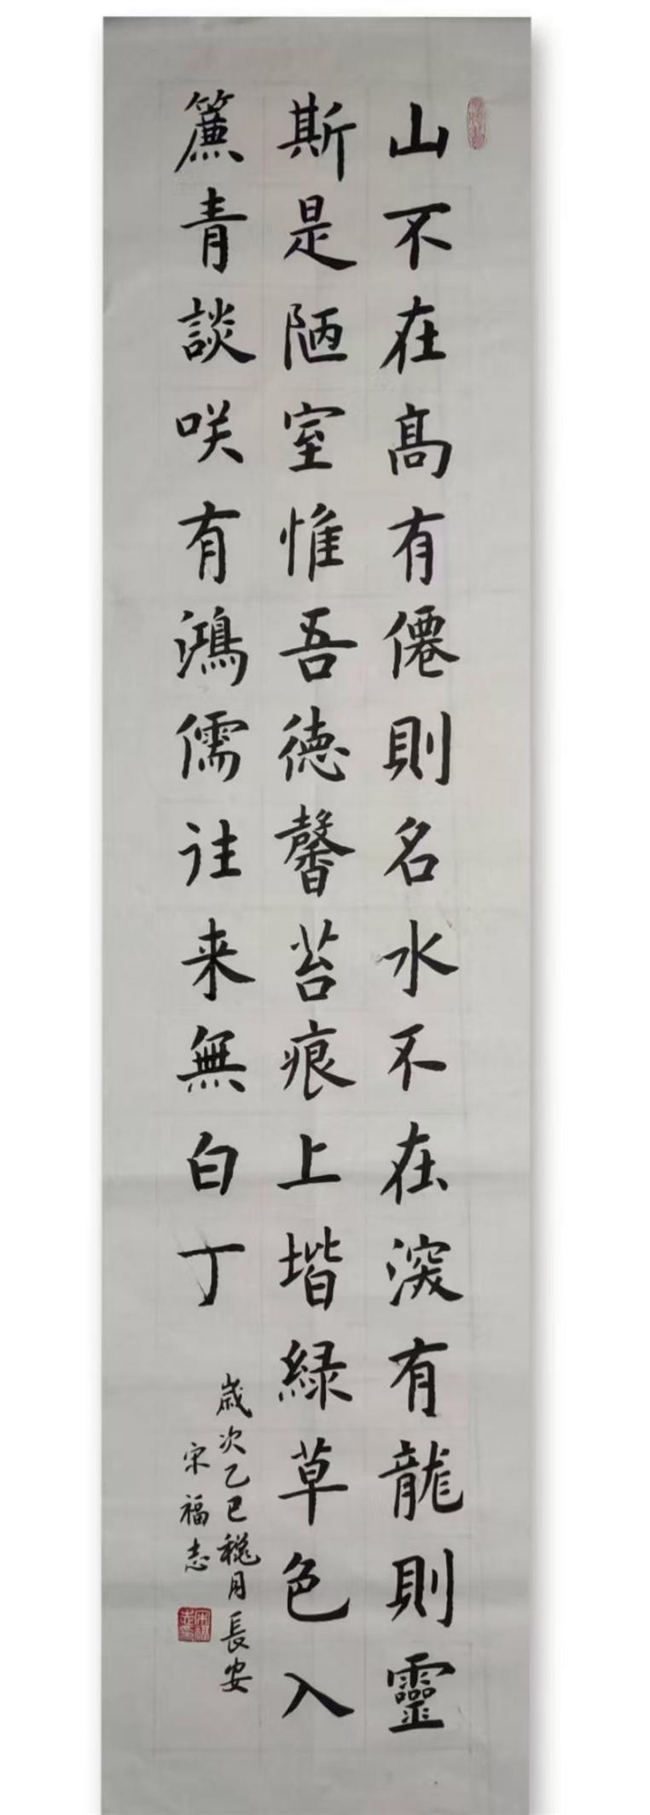 山不在高有僊則名水不在深有龍則靈
斯是陋室惟吾德馨苔痕上堦緑草色入
簾青談咲有鴻儒往来無白丁
歲次乙巳穐月長安
宋福志